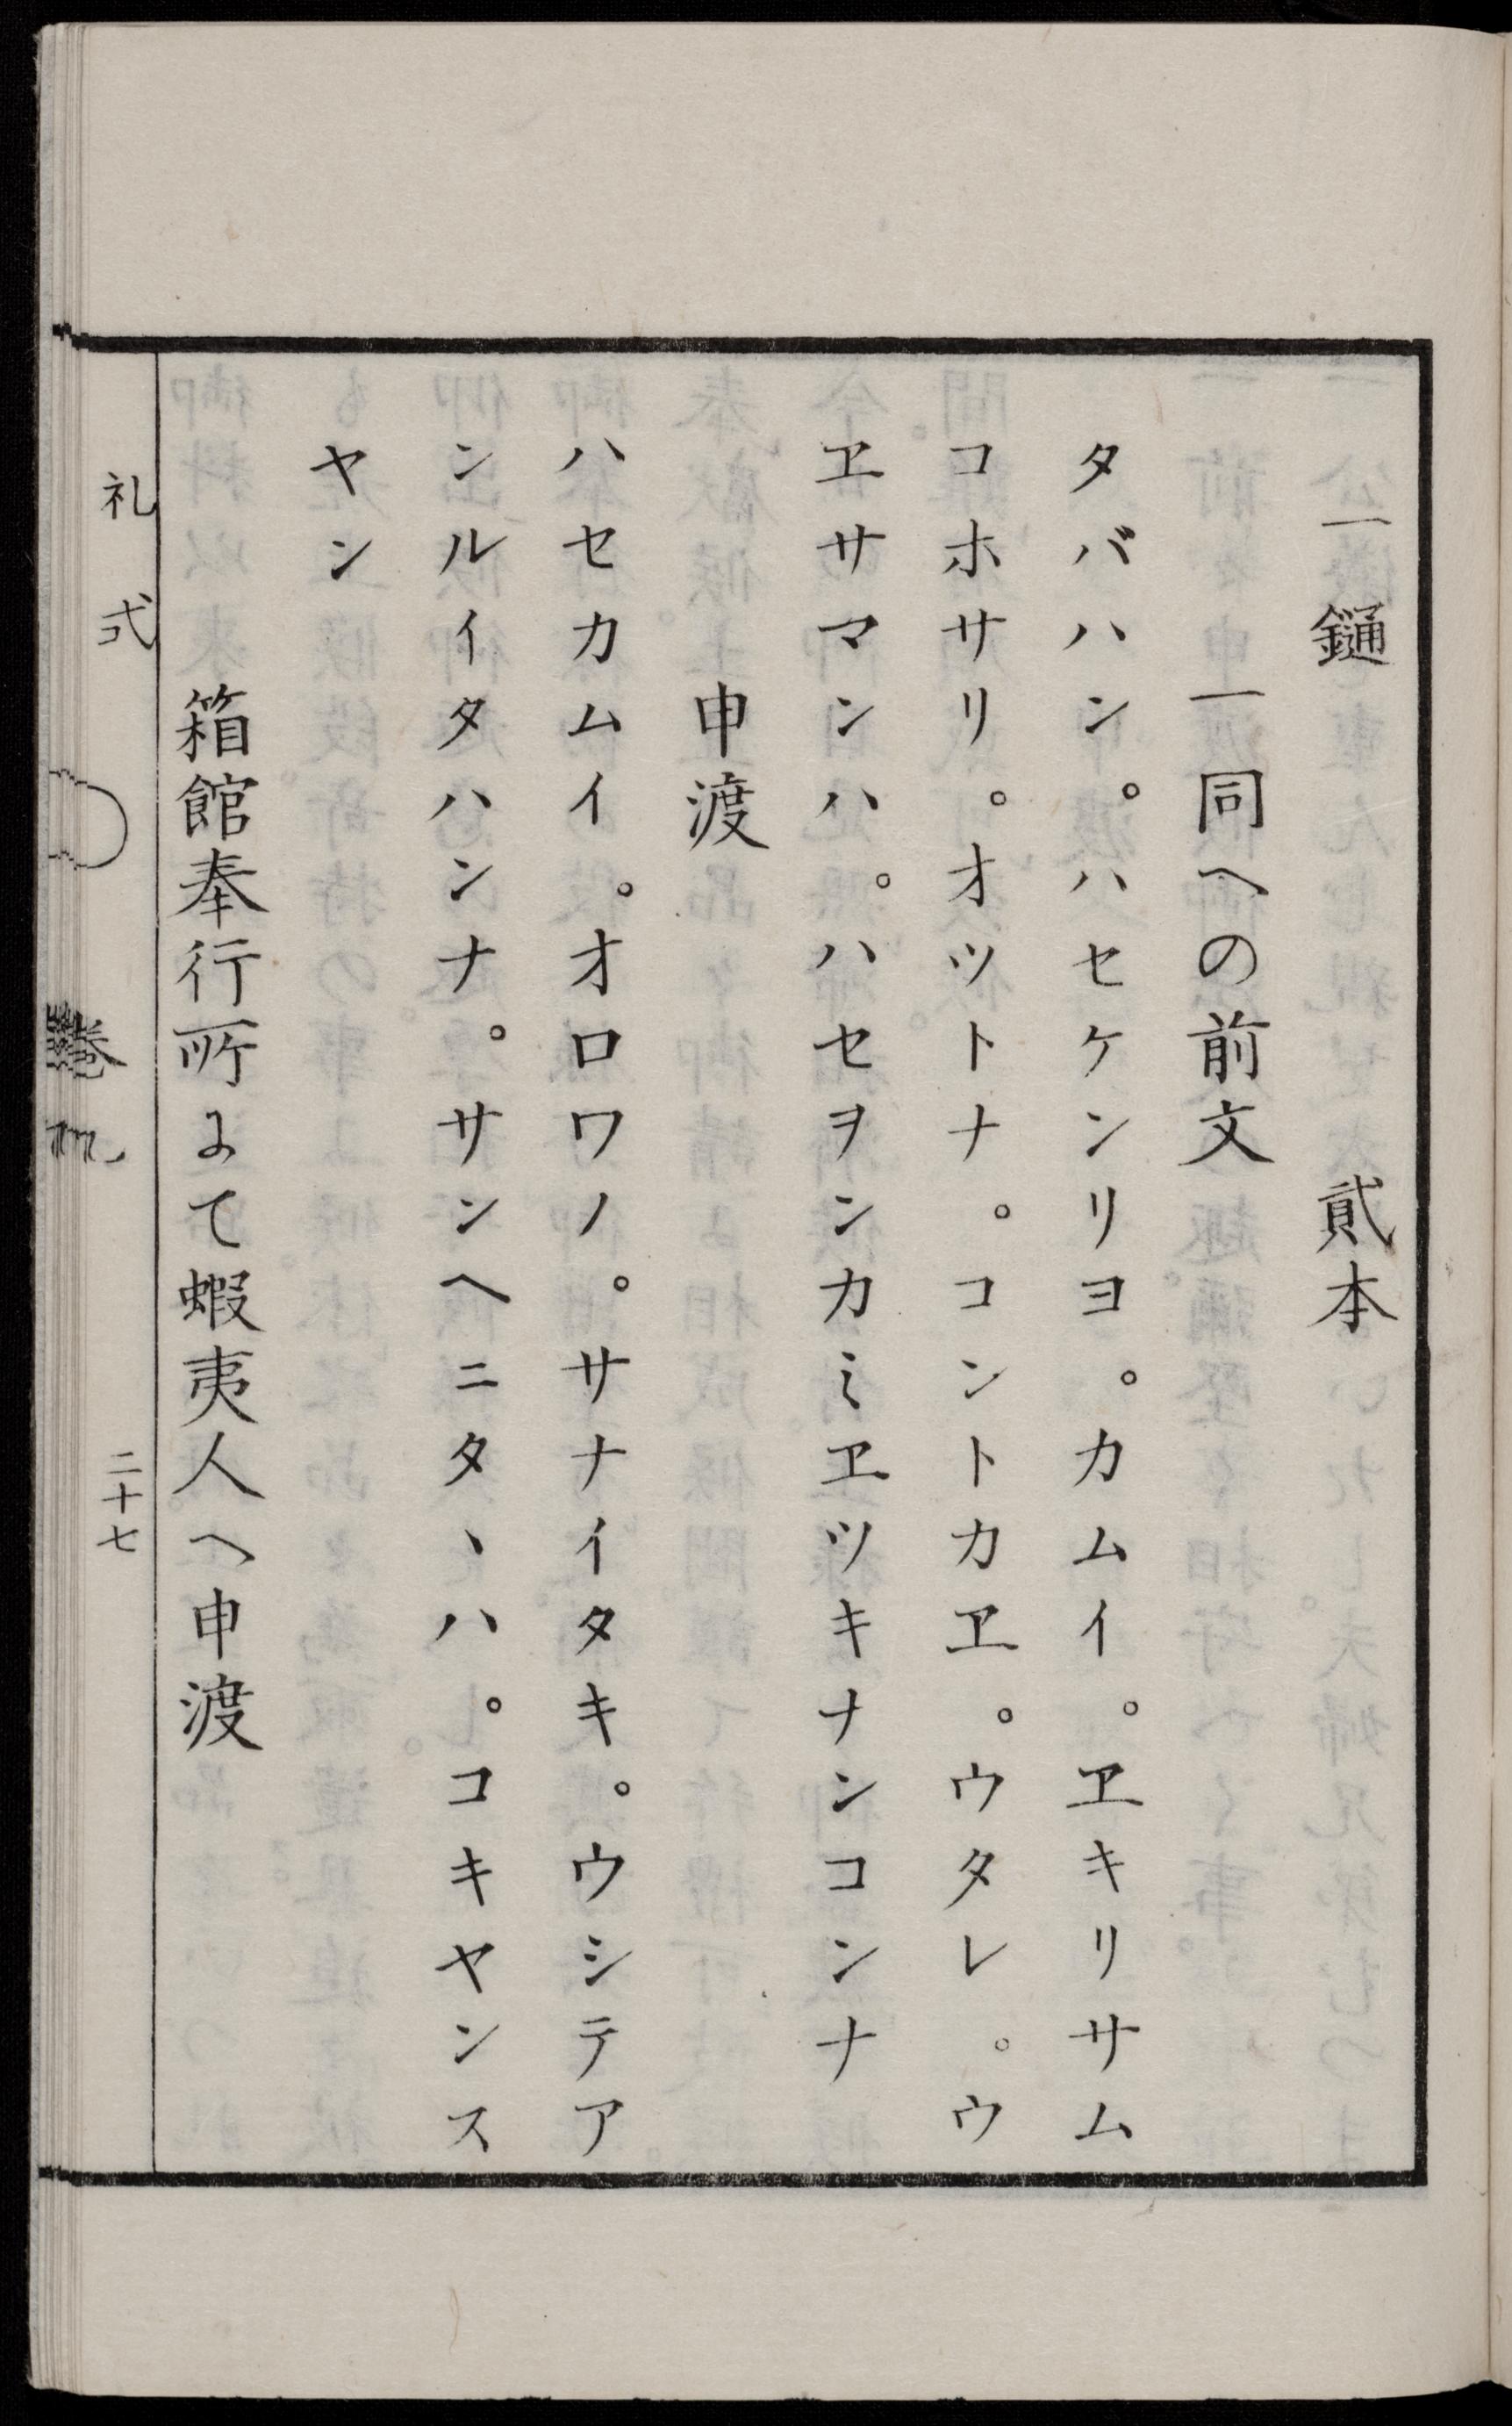 一鑓　　　　　　貳本
一同への前文
タバハン。ハセケンリヨ。カムイ。ヱキリサム
コホサリ。オツトナ。コントカヱ。ウタレ。ウ
ヱサマンハ。ハセヲンカミヱツキナンコンナ
申渡
ハセカムイ。オロワノ。サナイタキ。ウシテア
ンルイタハンナ。サンヘニタヽハ。コキヤンス
ヤン
箱館奉行所よて蝦夷人へ申渡
礼式　　二十七